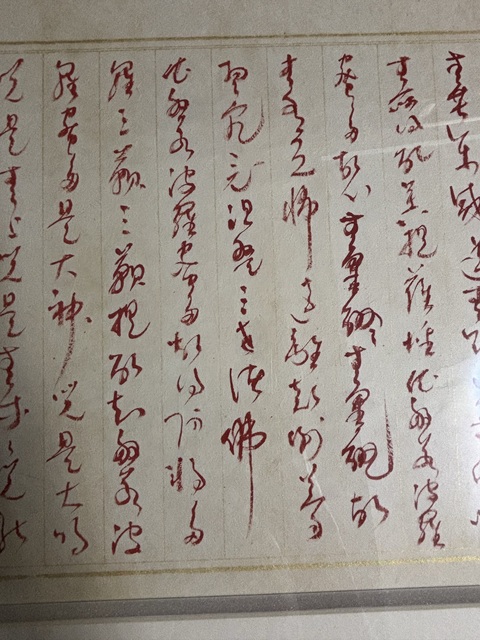 無苦集滅道無智亦無得以
無所得故菩提薩埵依般若波羅
蜜多故心無罣礙無罣礙故
無有恐怖遠離顛倒夢
想究竟涅槃三世諸佛
依般若波羅蜜多故得阿耨多
羅三藐三菩提故知般若波
羅蜜多是大神咒是大明
咒是無上咒是無等等咒能